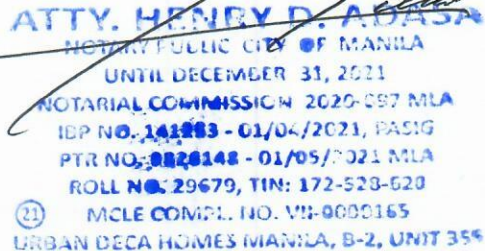 ATTY. HENRY D. ADASA
NOTARY PUBLIC CITY OF MANILA
UNTIL DECEMBER 31, 2021
NOTARIAL COMMISSION 2020-097 MLA
IBP NO. - 01/04/2021, PASIG
PTR NO. - 01/05/2021 MLA
ROLL NO. 29679, TIN: 172-528-620
21 MCLE COMPL. NO. VII-0000165
URBAN DECA HOMES MANILA, B-2, UNIT 355